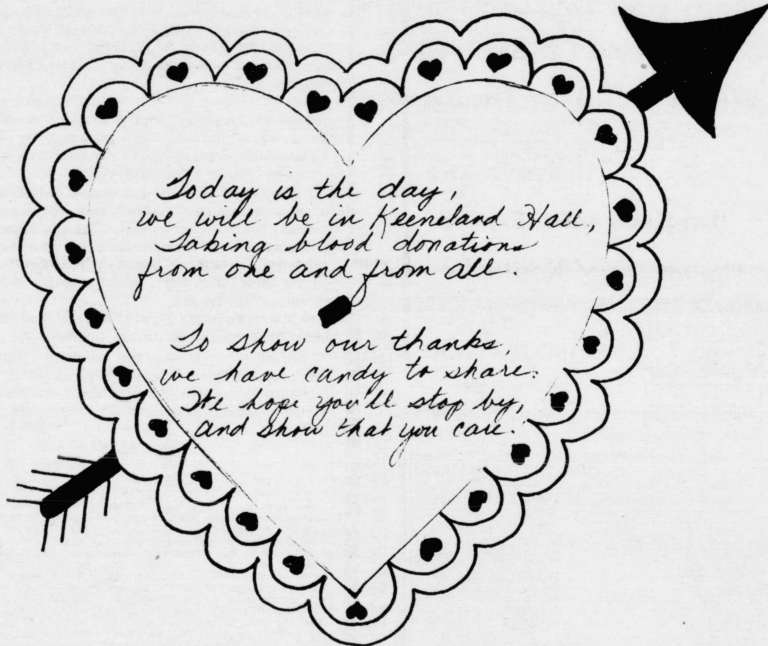 Today is the day,
we will be in Keeneland Hall,
Taking blood donations
from one and from all.
To show our thanks,
we have candy to share.
We hope you'll stop by,
and show that you care.